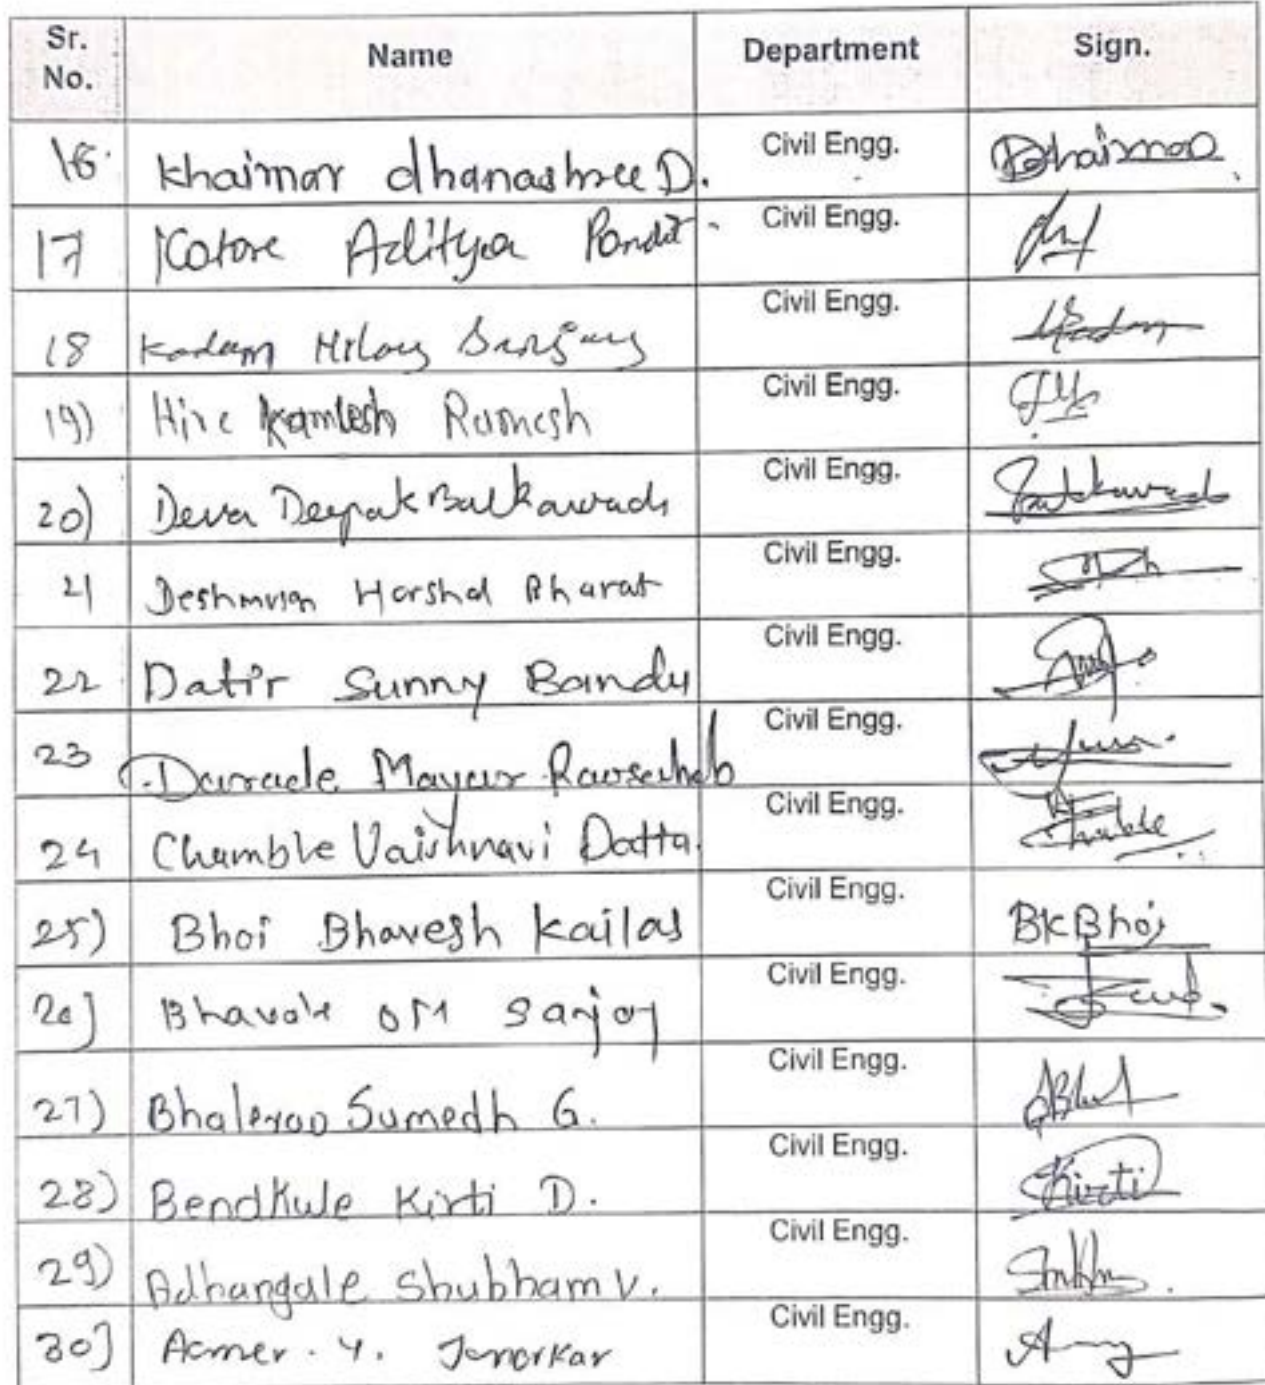 Sr. No. Name Department Sign.
16. Khairnar dhanashree D. Civil Engg.
17 Katore Aditya Pandit. Civil Engg.
18 Kadam Sanjay Civil Engg. Kadam
19) Hire Kamlesh Ramesh Civil Engg.
20) Deva Deepak Balkawade Civil Engg.
21 Deshmukh Harshal Bharat Civil Engg.
22 Datir Sunny Bandu Civil Engg.
23 Darade Mayur Raosaheb Civil Engg.
24 Chamble Vaishnavi Datta. Civil Engg.
25) Bhoi Bhavesh Kailas Civil Engg. BKBhoi
26] Bhavale OM Sanjay Civil Engg.
27) Bhalerao Sumedh G. Civil Engg.
28) Bendkule Kirti D. Civil Engg. Kirti
29) Adhangale Shubham V. Civil Engg.
30] Civil Engg.